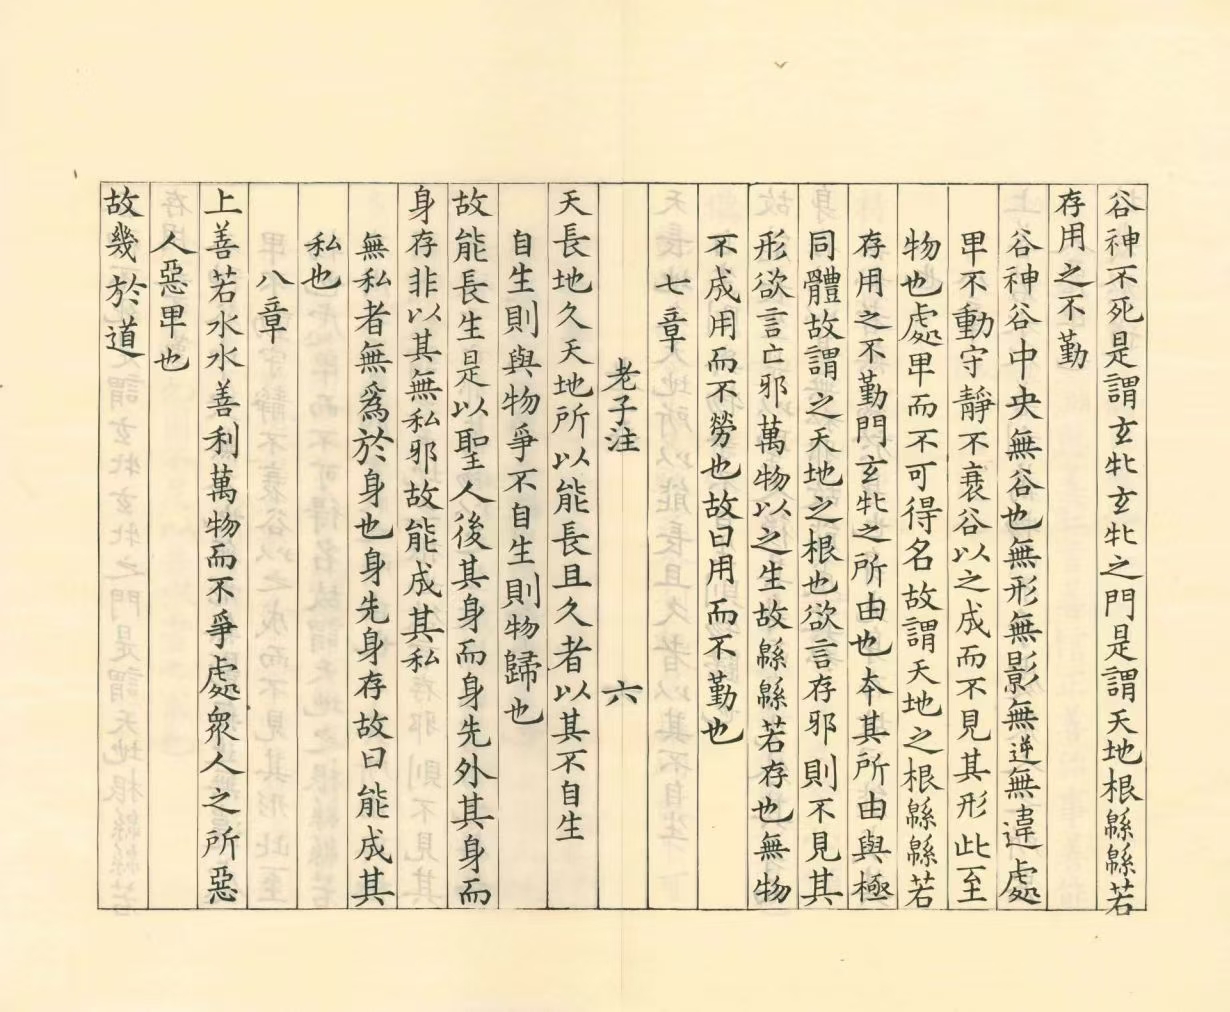 谷神不死是謂玄牝玄牝之門是謂天地根緜緜若
存用之不勤
谷神谷中央無谷也無形無影無逆無違處
卑不動守靜不衰谷以之成而不見其形此至
物也處卑而不可得名故謂天地之根緜緜若
存用之不勤門玄牝之所由也本其所由與極
同體故謂之天地之根也欲言存邪則不見其
形欲言亡邪萬物以之生故緜緜若存也無物
不成用而不勞也故曰用而不勤也
七章
老子注 六
天長地久天地所以能長且久者以其不自生
自生則與物爭不自生則物歸也
故能長生是以聖人後其身而身先外其身而
身存非以其無私邪故能成其私
無私者無爲於身也身先身存故曰能成其
私也
八章
上善若水水善利萬物而不爭處衆人之所惡
人惡卑也
故幾於道